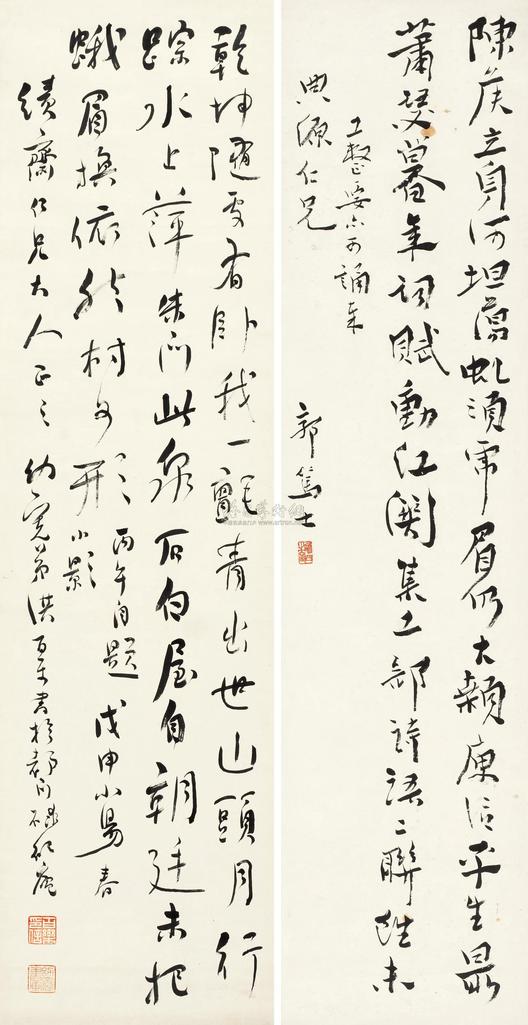 陳侯立身何坦蕩虬須虎眉仍大顙庾信平生最
蕭瑟暮年詞賦動江關集工部詩語二聯雖未
工整要亦可誦耒
典源仁兄
郭篤士
乾坤隨處有卧我一氈青出世山頭月行
蹤水上萍朱門此泉石白屋自朝廷未把
蛾眉換依然村女形 丙午自題小影 戊申小陽春
績齋仁兄大人正之 幼寬弟洪百書於都門